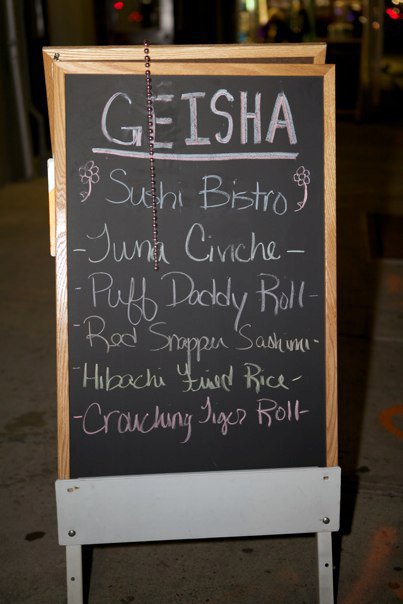 GEISHA
Sushi Bistro
-Tuna Civiche-
-Puff Daddy Roll-
-Red Snapper Sashimi-
-Hibachi Fried Rice-
-Crouching Tiger Roll-